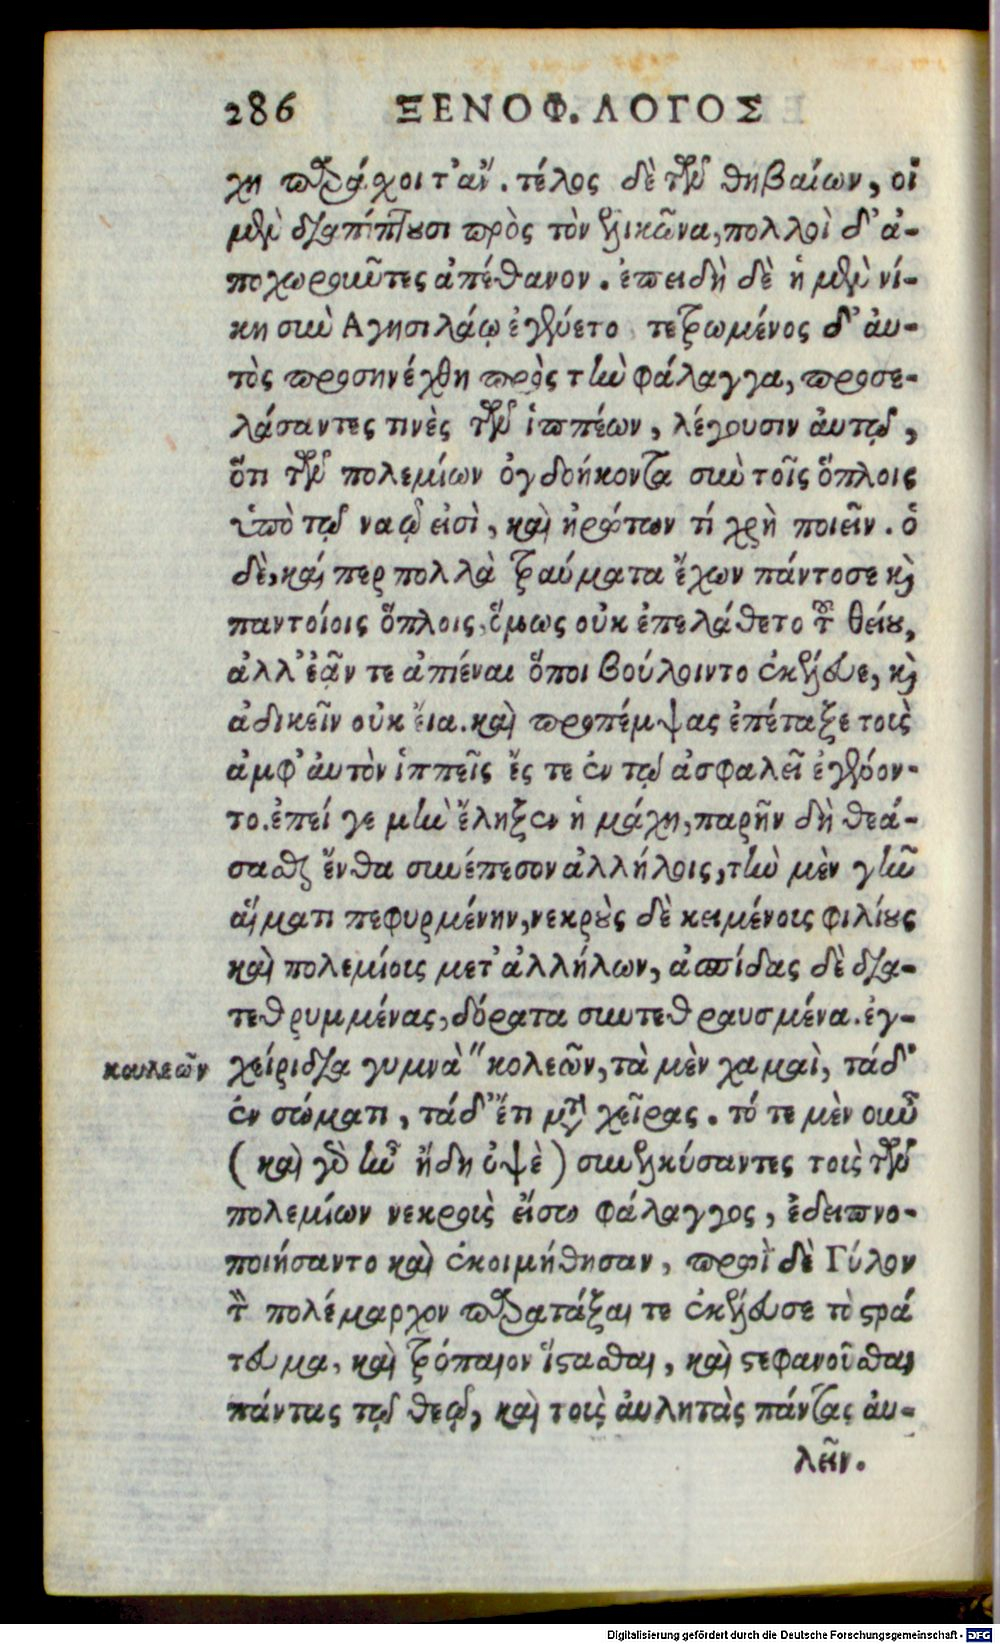 286 ΞΕΝΟΦ. ΛΟΓΟΣ
χη παράχοιτ' ἄν. τέλος δὲ τῶν θηβαίων, οἱ
μὲν διαπίπτουσι πρὸς τὸν ἑλικῶνα, πολλοὶ δ' ἀ-
ποχωροῦντες ἀπέθανον. ἐπειδὴ δὲ ἡ μὲν νί-
κη σὺν Αγησιλάῳ ἐγένετο τετρωμένος δ' ἀυ-
τὸς προσηνέχθη πρὸς τὴν φάλαγγα, προσε-
λάσαντες τινὲς τῶν ἱππέων, λέγουσιν ἀυτῷ,
ὅτι τῶν πολεμίων ὀγδοήκοντα σὺν τοῖς ὅπλοις
ὑπὸ τῷ ναῷ εἰσὶ, καὶ ἠρώτων τί χρὴ ποιεῖν. ὁ
δὲ, καί περ πολλὰ τραύματα ἔχων πάντοσε καὶ
παντοίοις ὅπλοις, ὅμως οὐκ ἐπελάθετο τοῦ θείου,
ἀλλ' ἐᾶν τε ἀπιέναι ὅποι βούλοιντο ἐκέλευε, καὶ
ἀδικεῖν οὐκ εἴα. καὶ προπέμψας ἐπέταξε τοὺς
ἀμφ' ἀυτὸν ἱππεῖς ἔς τε ἐν τῷ ἀσφαλεῖ ἐγένον-
το. ἐπεί γε μὴν ἔληξεν ἡ μάχη, παρῆν δὴ θεά-
σασθαι ἔνθα συνέπεσον ἀλλήλοις, τὴν μὲν γῆν
αἵματι πεφυρμένην, νεκροὺς δὲ κειμένους φιλίους
καὶ πολεμίους μετ' ἀλλήλων, ἀσπίδας δὲ δια-
τεθρυμμένας, δόρατα συντεθραυσμένα. ἐγ-
κουλεῶν χείριδια γυμνὰ " κολεῶν, τὰ μὲν χαμαὶ, τάδ'
ἐν σώματι, τάδ' ἔτι μετὰ χεῖρας. τό τε μὲν οὖν
(καὶ γὰρ ἦν ἤδη ὀψὲ) συνελκύσαντες τοὺς τῶν
πολεμίων νεκροὺς εἴσω φάλαγγος, ἐδειπνο-
ποιήσαντο καὶ ἐκοιμήθησαν, πρωῒ δὲ Γύλον
τὸν πολέμαρχον παρατάξαι τε ἐκέλευσε τὸ στρά
τευμα, καὶ τρόπαιον ἵστασθαι, καὶ στεφανοῦσθαι
πάντας τῷ θεῷ, καὶ τοὺς ἀυλητὰς πάντας ἀυ-
λεῖν.
Digitalisierung gefördert durch die Deutsche Forschungsgemeinschaft - DFG